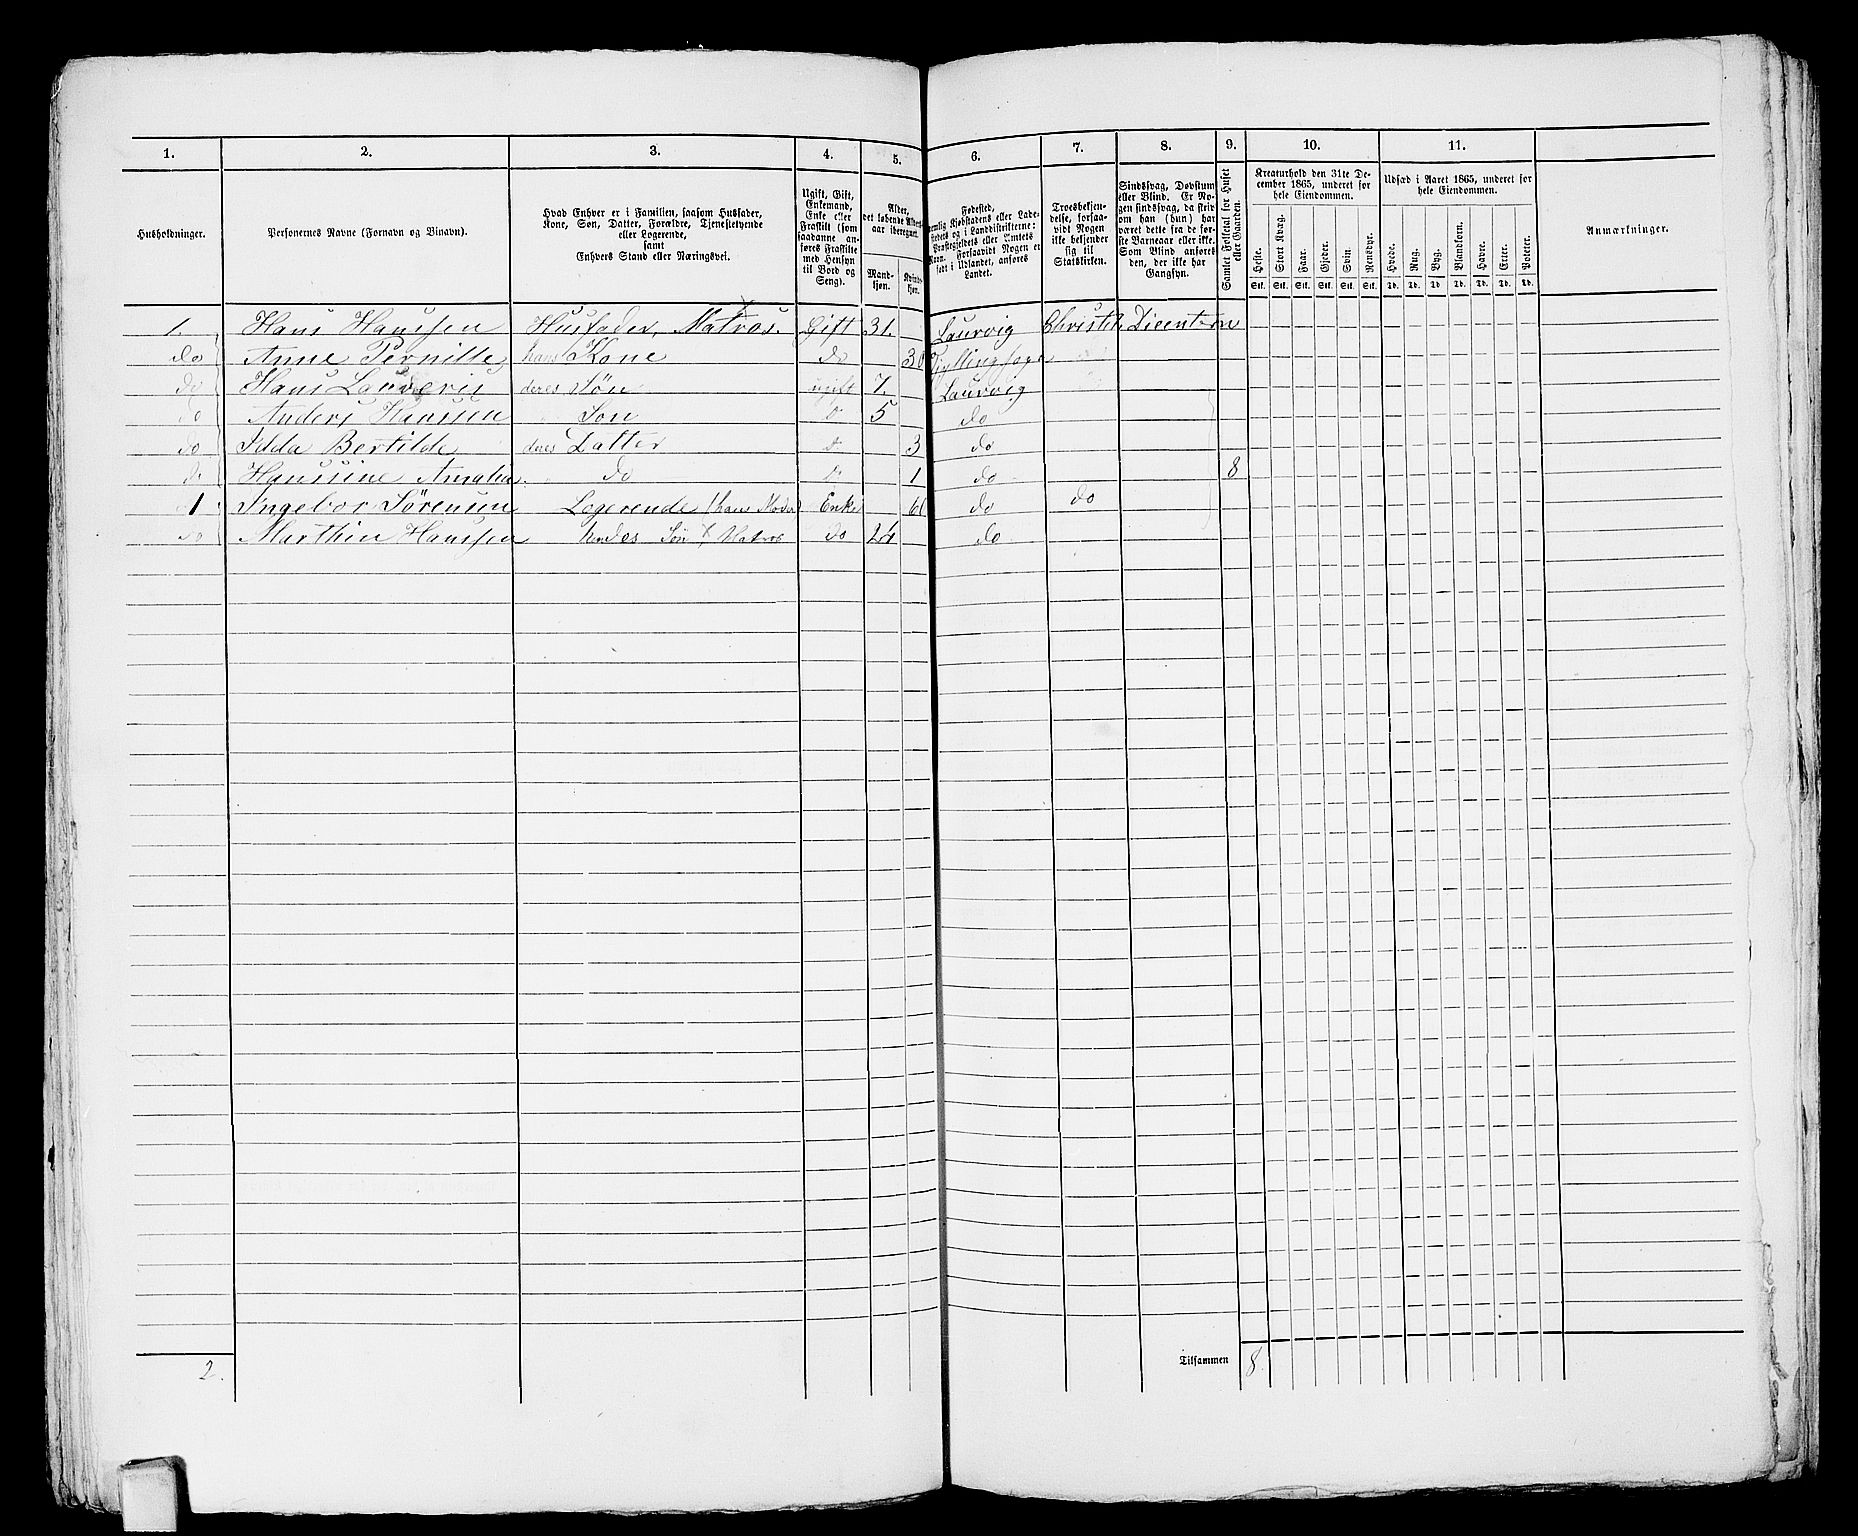 1. 2. 3. 4. 5. 6. 7. 8. 9. 10. 11.
Husholdninger.
Personernes Navne (Fornavn og Binavn).
Hvad Enhver er i Familien, saasom Husfader,
Kone, Søn, Datter, Forældre, Tjenestetyende
eller Logerende,
samt
Enhvers Stand eller Næringsvei.
Ugift, Gift,
Enkemand,
Enke eller
Fraskilt (som
saadanne an-
føres Fraskilte
med Hensyn
til Bord og
Seng).
Alder,
det løbende Alders-
aar iberegnet.
Mand-
kjøn.
Kvinde-
kjøn.
Fødested,
nemlig Kjøbstadens eller Lade-
stedets og i Landdistrikterne:
Præstegjeldets eller Amtets
Navn. Forsaavidt Nogen er
født i Udlandet, anføres
Landet.
Troesbekjen-
delse, forsaa-
vidt Nogen
ikke bekjender
sig til
Statskirken.
Sindssvag, Døvstum
eller Blind. Er No-
gen sindssvag, da skriv
om han (hun) har
været dette fra de før-
ste Barneaar eller ikke.
Som Blind anføres
den, der ikke har
Gangsyn.
Samlet Folketal for Huset
eller Gaarden.
Kreaturhold den 31te De-
cember 1865, underet for
hele Eiendommen.
Heste. Stort Kvæg. Faar. Gjeder. Svin. Rensdyr.
Stk. Stk. Stk. Stk. Stk. Stk.
Udsæd i Aaret 1865, underet for
hele Eiendommen.
Hvede. Rug. Byg. Blandkorn. Havre. Erter. Poteter.
Td. Td. Td. Td. Td. Td. Td.
Anmærkninger.
1. Hans Hanssen Husfader, Matros. Gift 31. Laurvig Christel. Dicentern
do Anne Pernille hans Kone do 30
do Hans Lauveris deres Søn ugift 7. Laurvig
do Anders Hanssen Søn d 5 do
do Idda Bertilde deres Datter d 3 do
do Hanssine Amalia do d 1 do 8
1 Ingebor Sørensen Logerende (hans Moder) Enke 60 do do
do Marthin Hanssen hendes Søn, Matros do 24 do
2. Tilsammen 8.